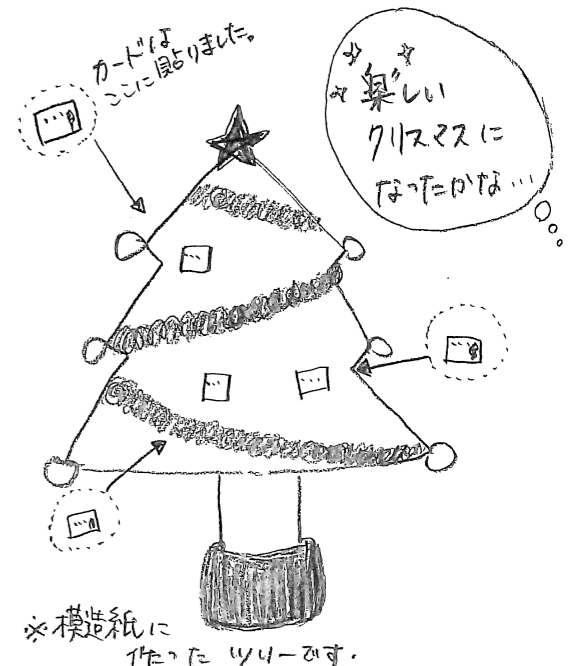 カードは
ここに貼りました。
楽しい
クリスマスに
なったかな…
※模造紙に
作ったツリーです.